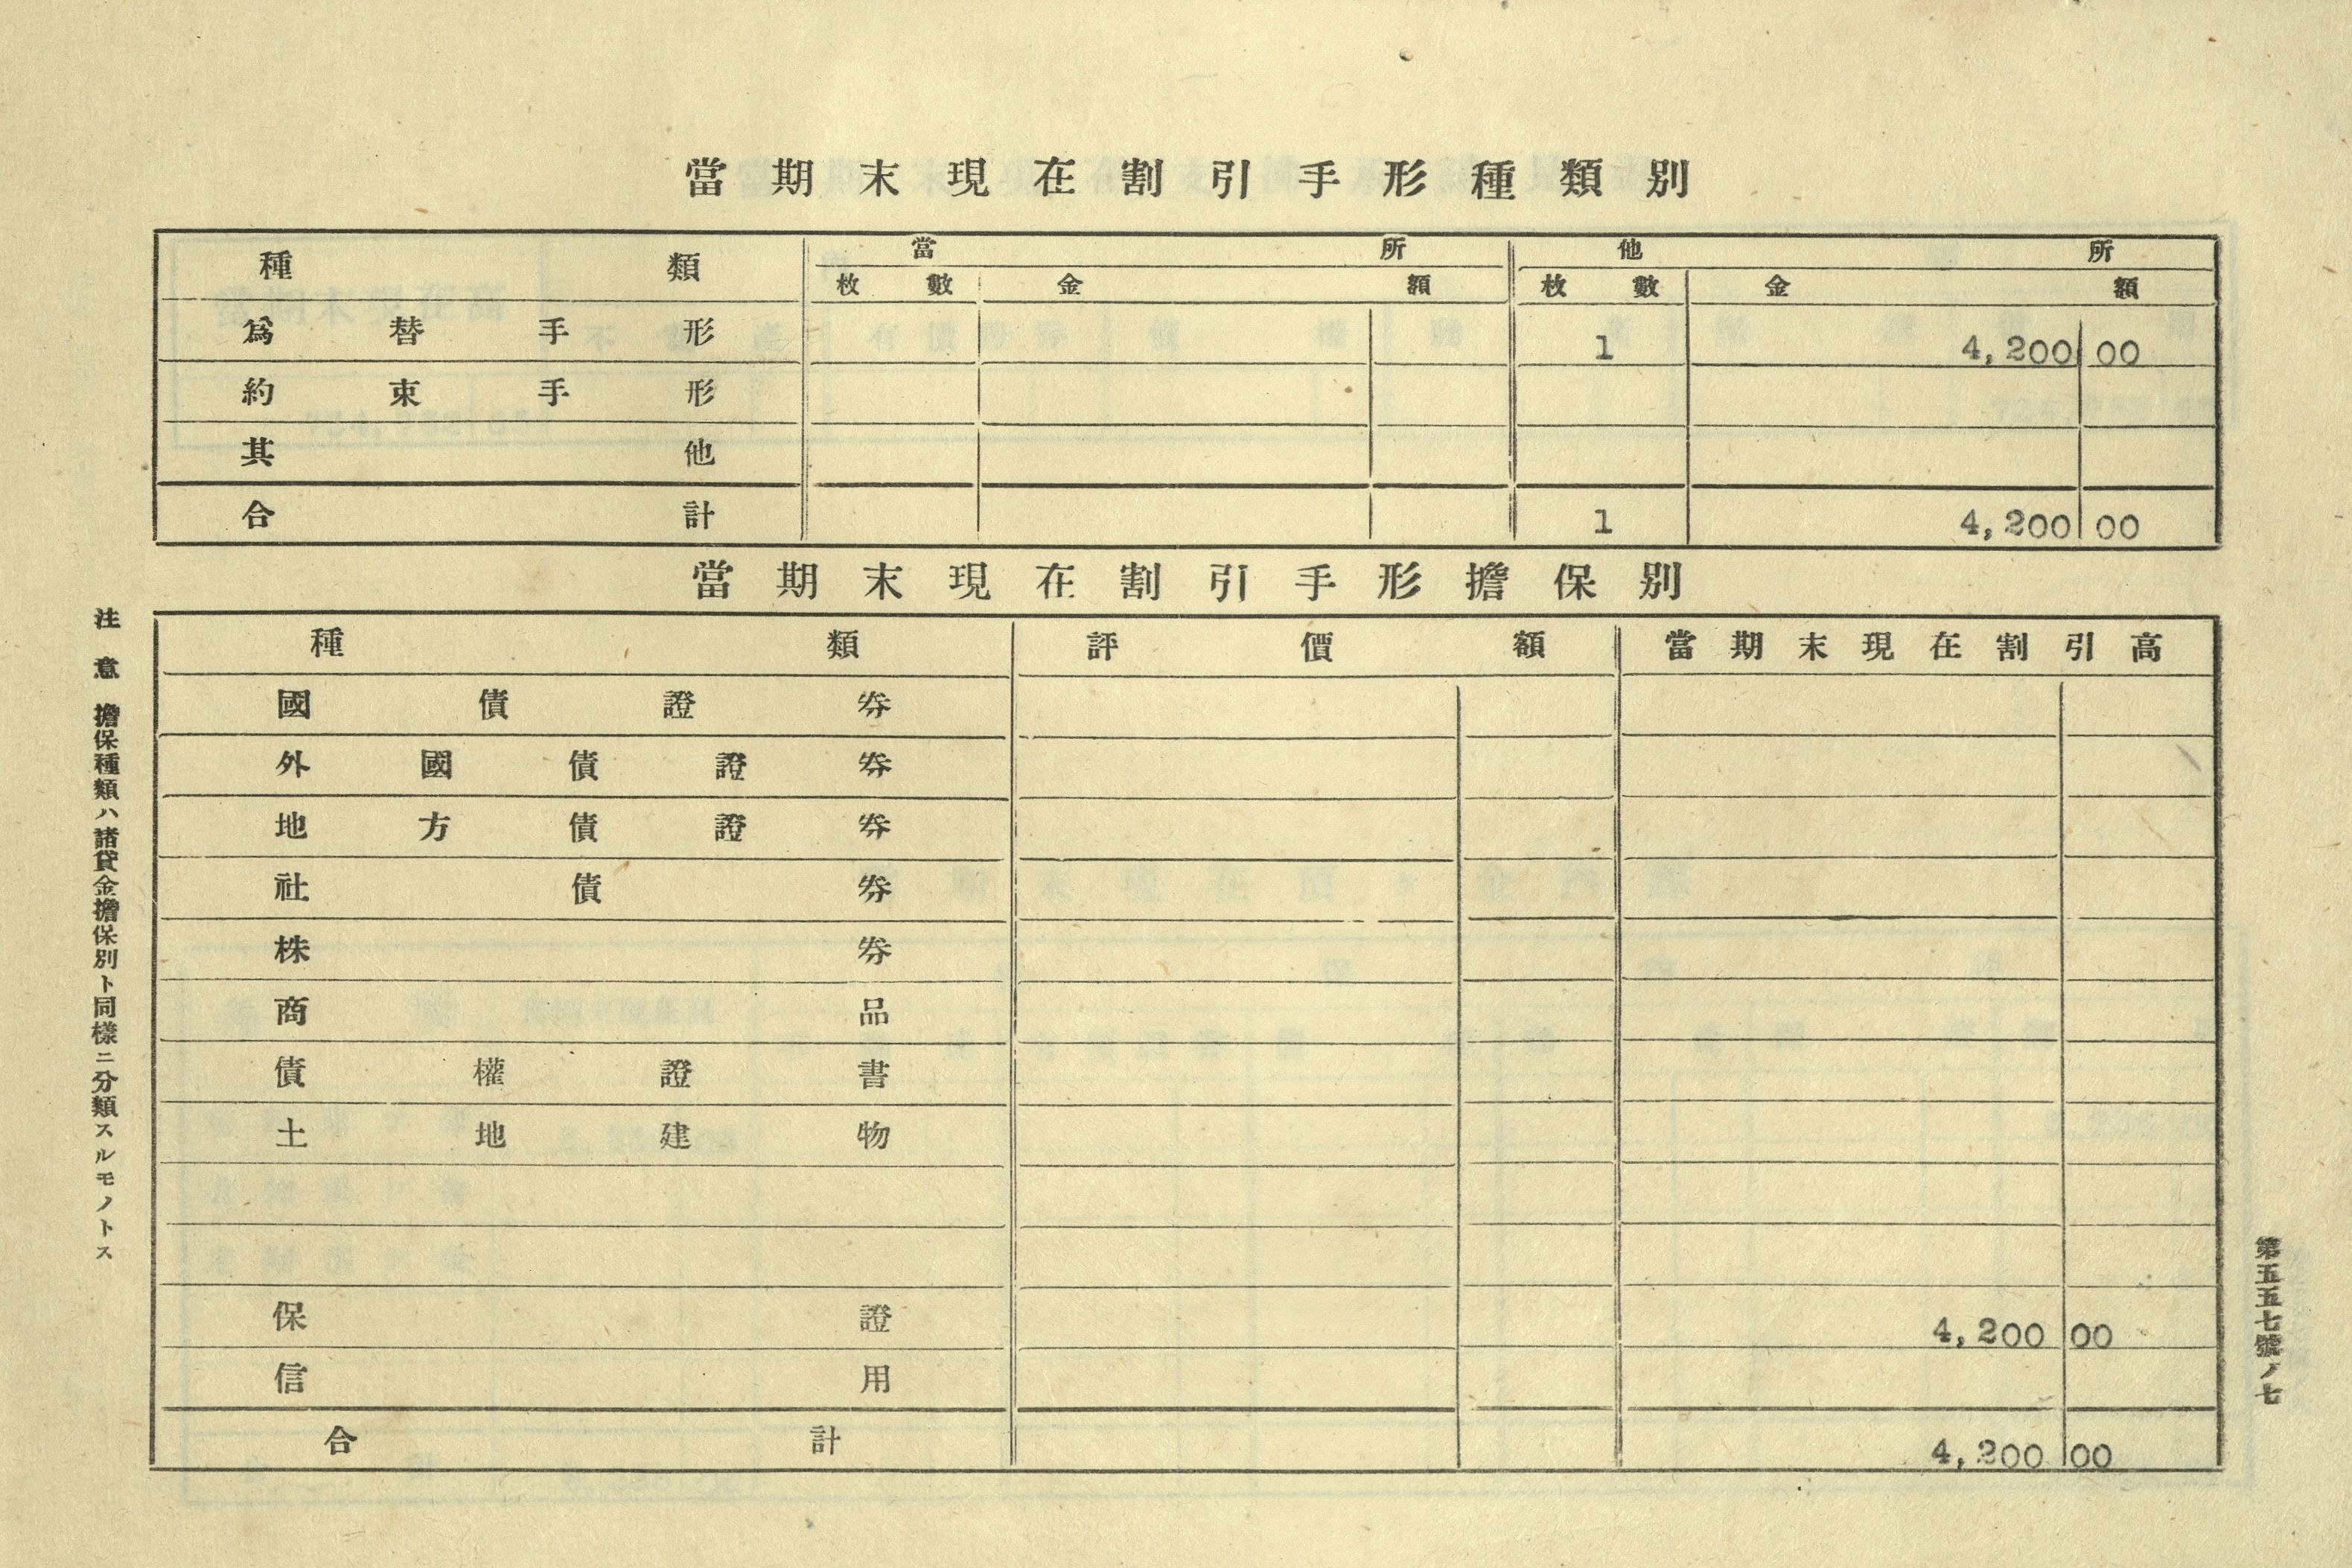 當期末現在割引手形種類別
種類 當所 他所
枚數 金額 枚數 金額
爲替手形 1 4,200 00
約束手形
其他
合計 1 4,200 00
當期末現在割引手形擔保別
種類 評價額 當期末現在割引高
國債證券
外國債證券
地方債證券
社債券
株券
商品
債權證書
土地建物
保證 4,200 00
信用
合計 4,200 00
注意 擔保種類ハ諸貸金擔保別ト同樣ニ分類スルモノトス
第五五七號ノ七